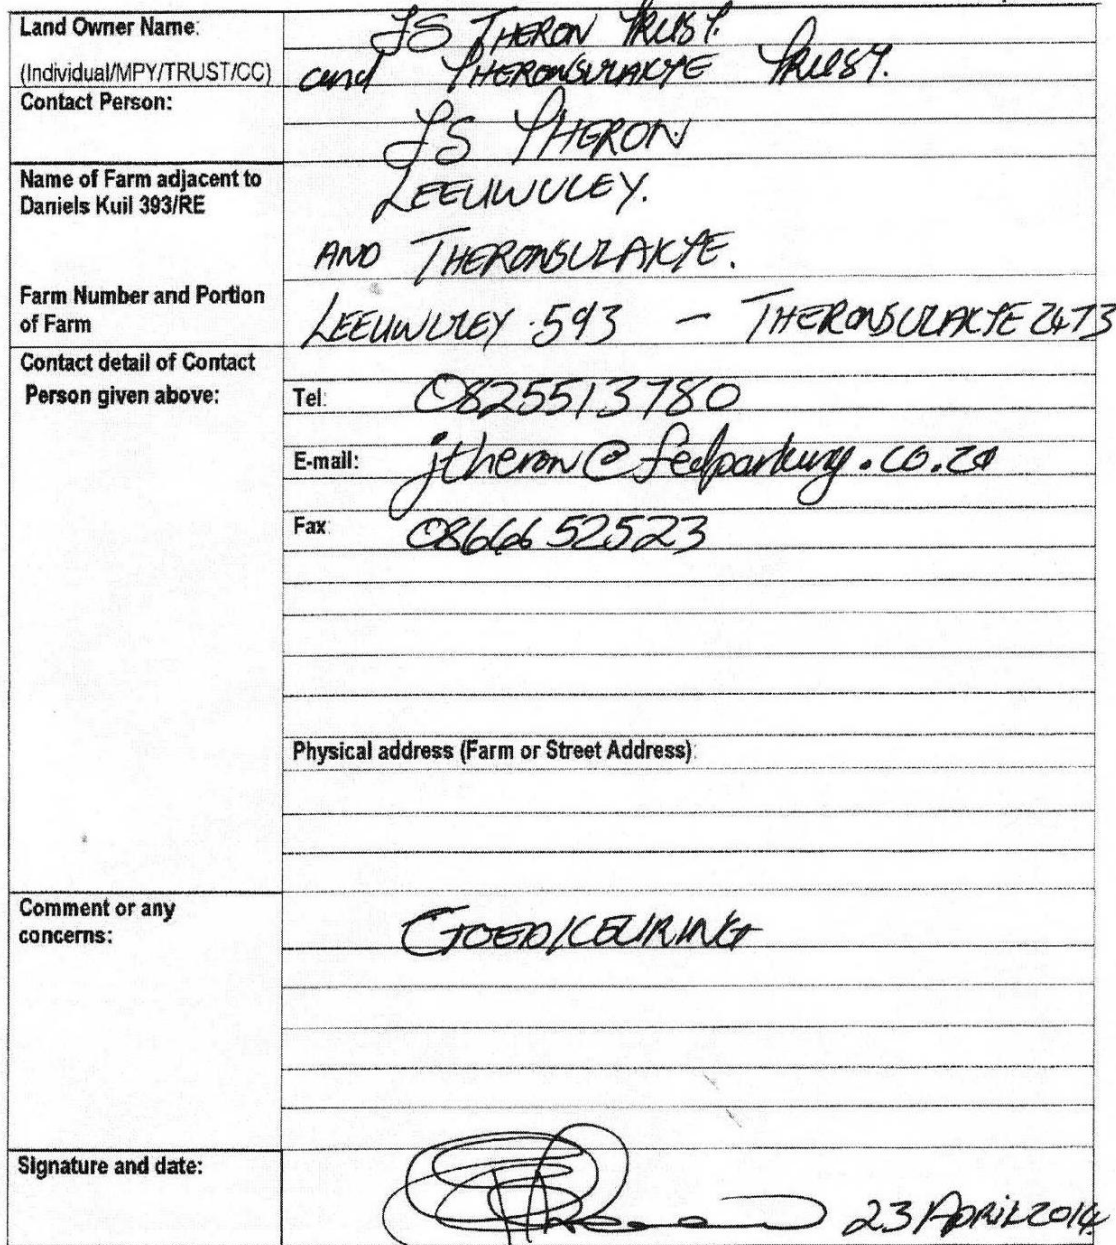 Land Owner Name:
JS THERON TRUST.
(Individual/MPY/TRUST/CC)
and THERONSVLAKTE TRUST.
Contact Person:
JS THERON
Name of Farm adjacent to
Daniels Kuil 393/RE
LEEUWVLEY.
AND THERONSVLAKTE.
Farm Number and Portion
of Farm
LEEUWVLEY 593 - THERONSVLAKTE 2473
Contact detail of Contact
Person given above:
Tel: 0825513780
E-mail: jtheron@fedparkwry.co.za
Fax: 0866652523
Physical address (Farm or Street Address):
Comment or any
concerns:
GOEDKEURING
Signature and date:
23 APRIL 2014